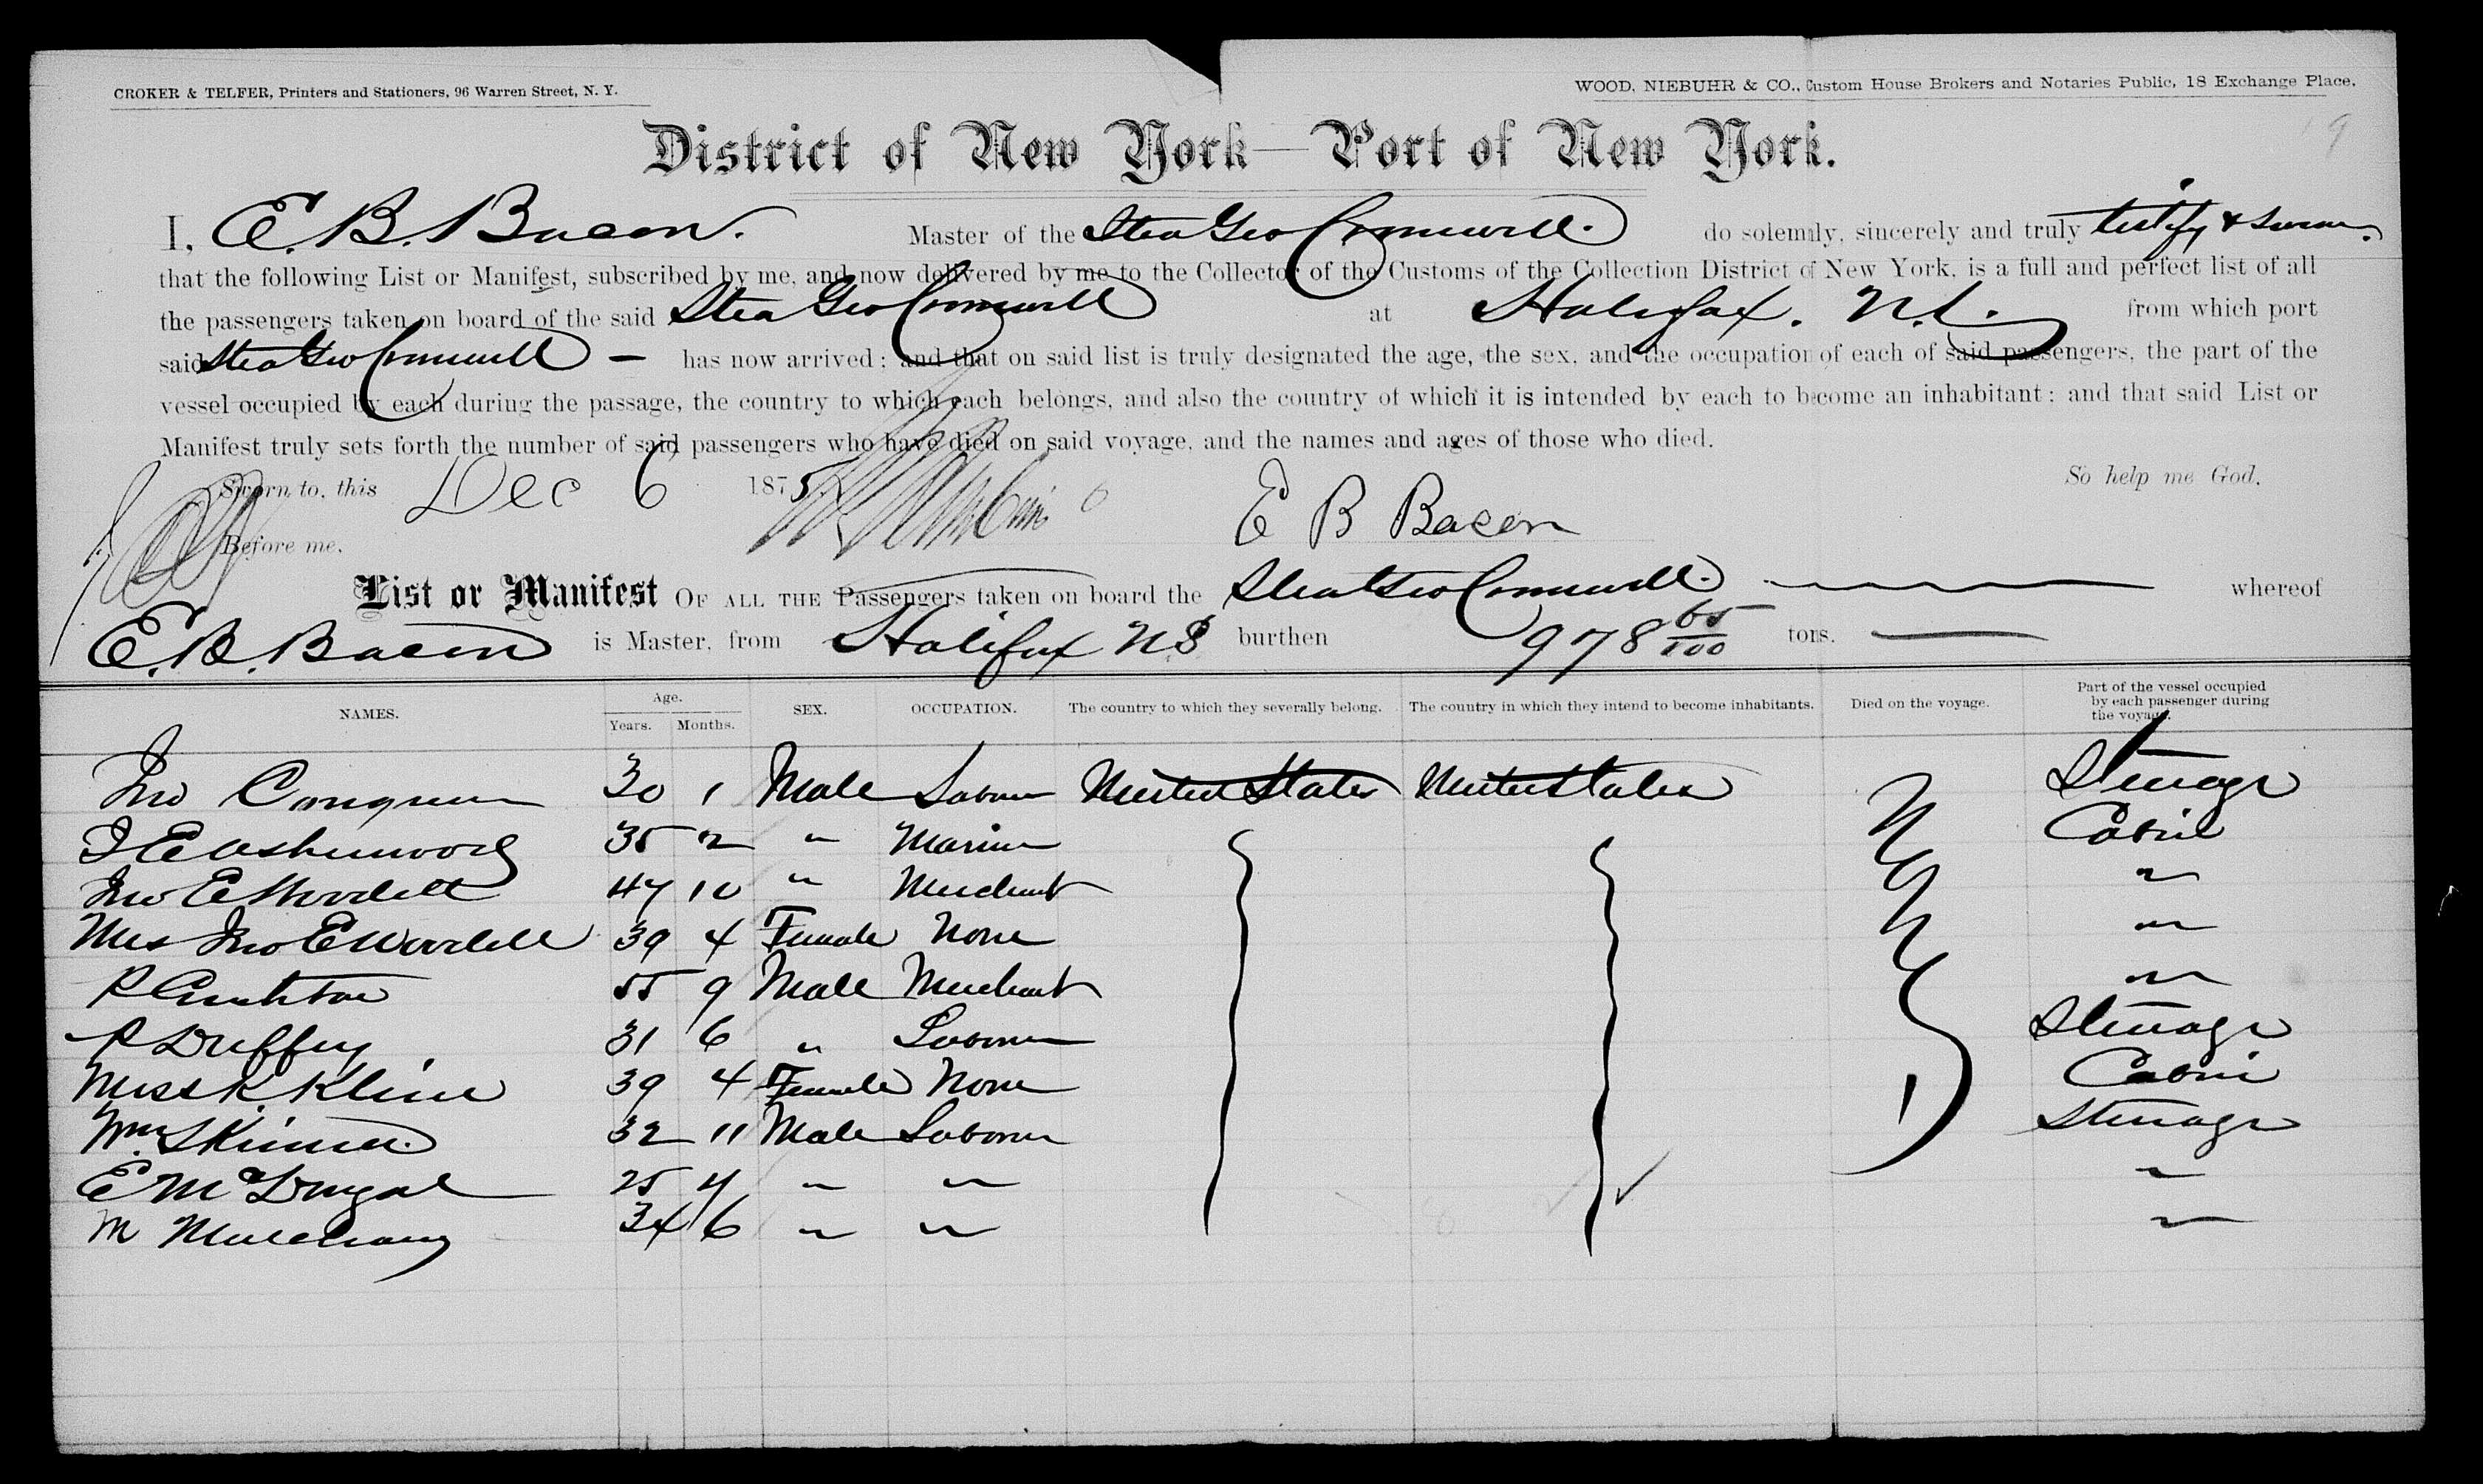 CROKER & TELFER, Printers and Stationers, 96 Warren Street, N. Y.
WOOD, NIEBUHR & CO., Custom House Brokers and Notaries Public, 18 Exchange Place.
19
District of New York—Port of New York.
I, E. B. Bacon. Master of the Stea Geo Cromwell. do solemnly, sincerely and truly testify & swear
that the following List or Manifest, subscribed by me, and now delivered by me to the Collector of the Customs of the Collection District of New York, is a full and perfect list of all
the passengers taken on board of the said Stea Geo Cromwell at Halifax. N.S. from which port
said Stea Geo Cromwell — has now arrived; and that on said list is truly designated the age, the sex, and the occupation of each of said passengers, the part of the
vessel occupied by each during the passage, the country to which each belongs, and also the country of which it is intended by each to become an inhabitant; and that said List or
Manifest truly sets forth the number of said passengers who have died on said voyage, and the names and ages of those who died.
Sworn to, this Dec 6 1875 So help me God.
Before me. E B Bacon
List or Manifest OF ALL THE Passengers taken on board the Stea Geo Cromwell. whereof
E. B. Bacon is Master, from Halifax NS burthen 978 65/100 tons.
NAMES. Age. Years. Months. SEX. OCCUPATION. The country to which they severally belong. The country in which they intend to become inhabitants. Died on the voyage. Part of the vessel occupied by each passenger during the voyage.
Jno 30 1 Male Laborer United States United States Steerage
35 2 " Marine Cabin
Jno E 47 10 " Merchant "
Mrs Jno E 39 4 Female None "
55 9 Male Merchant "
P Duffey 31 6 " Laborer Steerage
Miss K. Kline 39 4 Female None Cabin
Wm Skinner. 32 11 Male Laborer Steerage
E McDugal 25 4 " " "
M 34 6 " " "